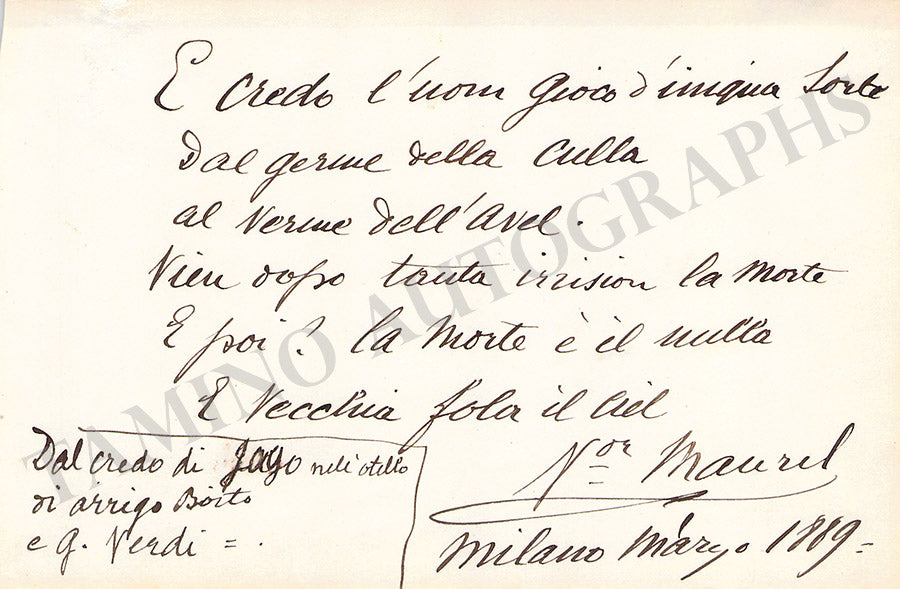 E credo l'uom gioco d'iniqua sorte
Dal germe della culla
al verme dell'avel.
Vien dopo tanta irrision la Morte
E poi? la Morte è il nulla
E Vecchia fola il Ciel
Dal credo di Jago nell'otello
di arrigo Boito
e G. Verdi = .
Vor Maurel
Milano Marzo 1889=
TAMINO AUTOGRAPHS